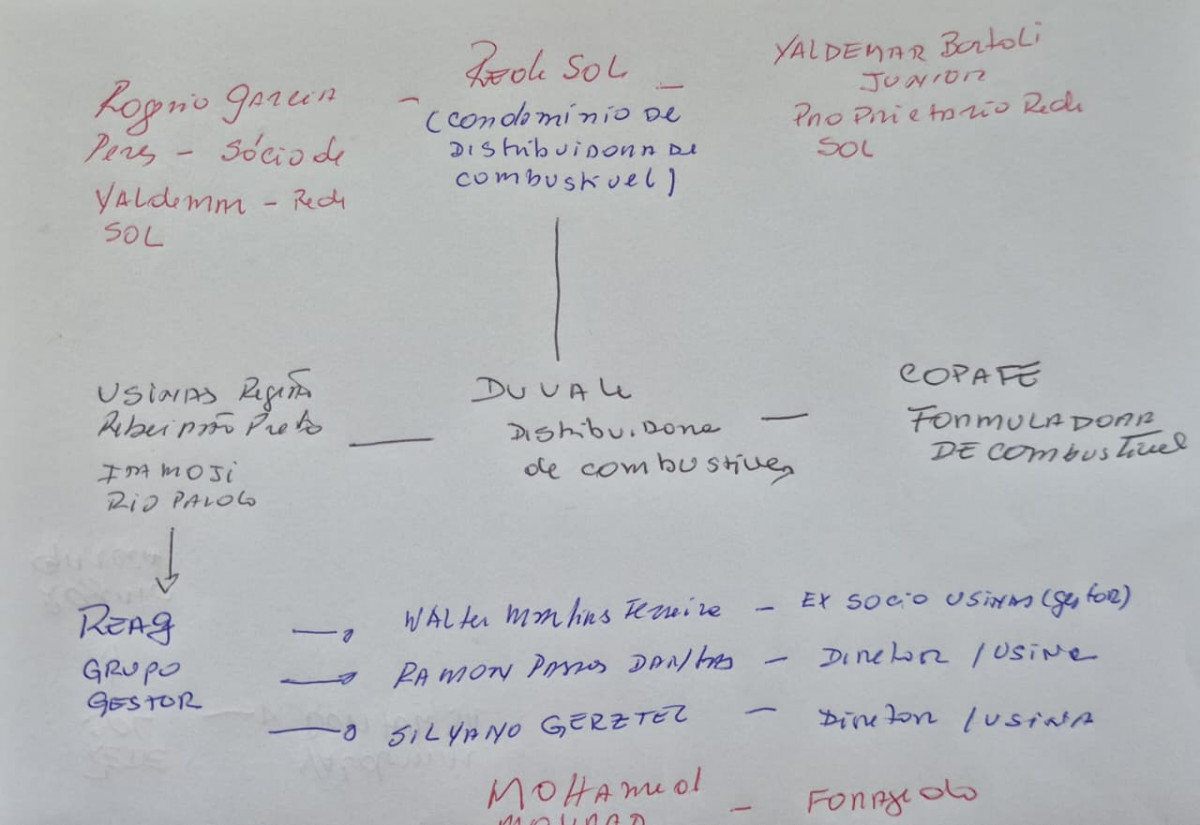 Rede SOL —
(CONDOMÍNIO DE
DISTRIBUIDORA DE
COMBUSTIVEL)
Rogério GARCIA —
Peres – Sócio de
VALdemar – Rede
SOL
VALDEMAR Bortoli
JUNIOR
PROPRIETARIO Rede
SOL
USINAS Região
Ribeirão Preto —
ITAMOJI
RIO PALOLO
DUVALE
Distribuidora —
de combustives
COPAPE
FORMULADORA
DE COMBUSTIVEL
REAG
GRUPO
GESTOR
→ WALter Martins Ferreira – EX SOCIO USINAS (gestor)
→ RAMON PASSOS DANTAS – Diretor / USINA
→ SILVANO GERZTEL – Diretor / USINA
MOHAMED — FORAGIDO
MOURAD